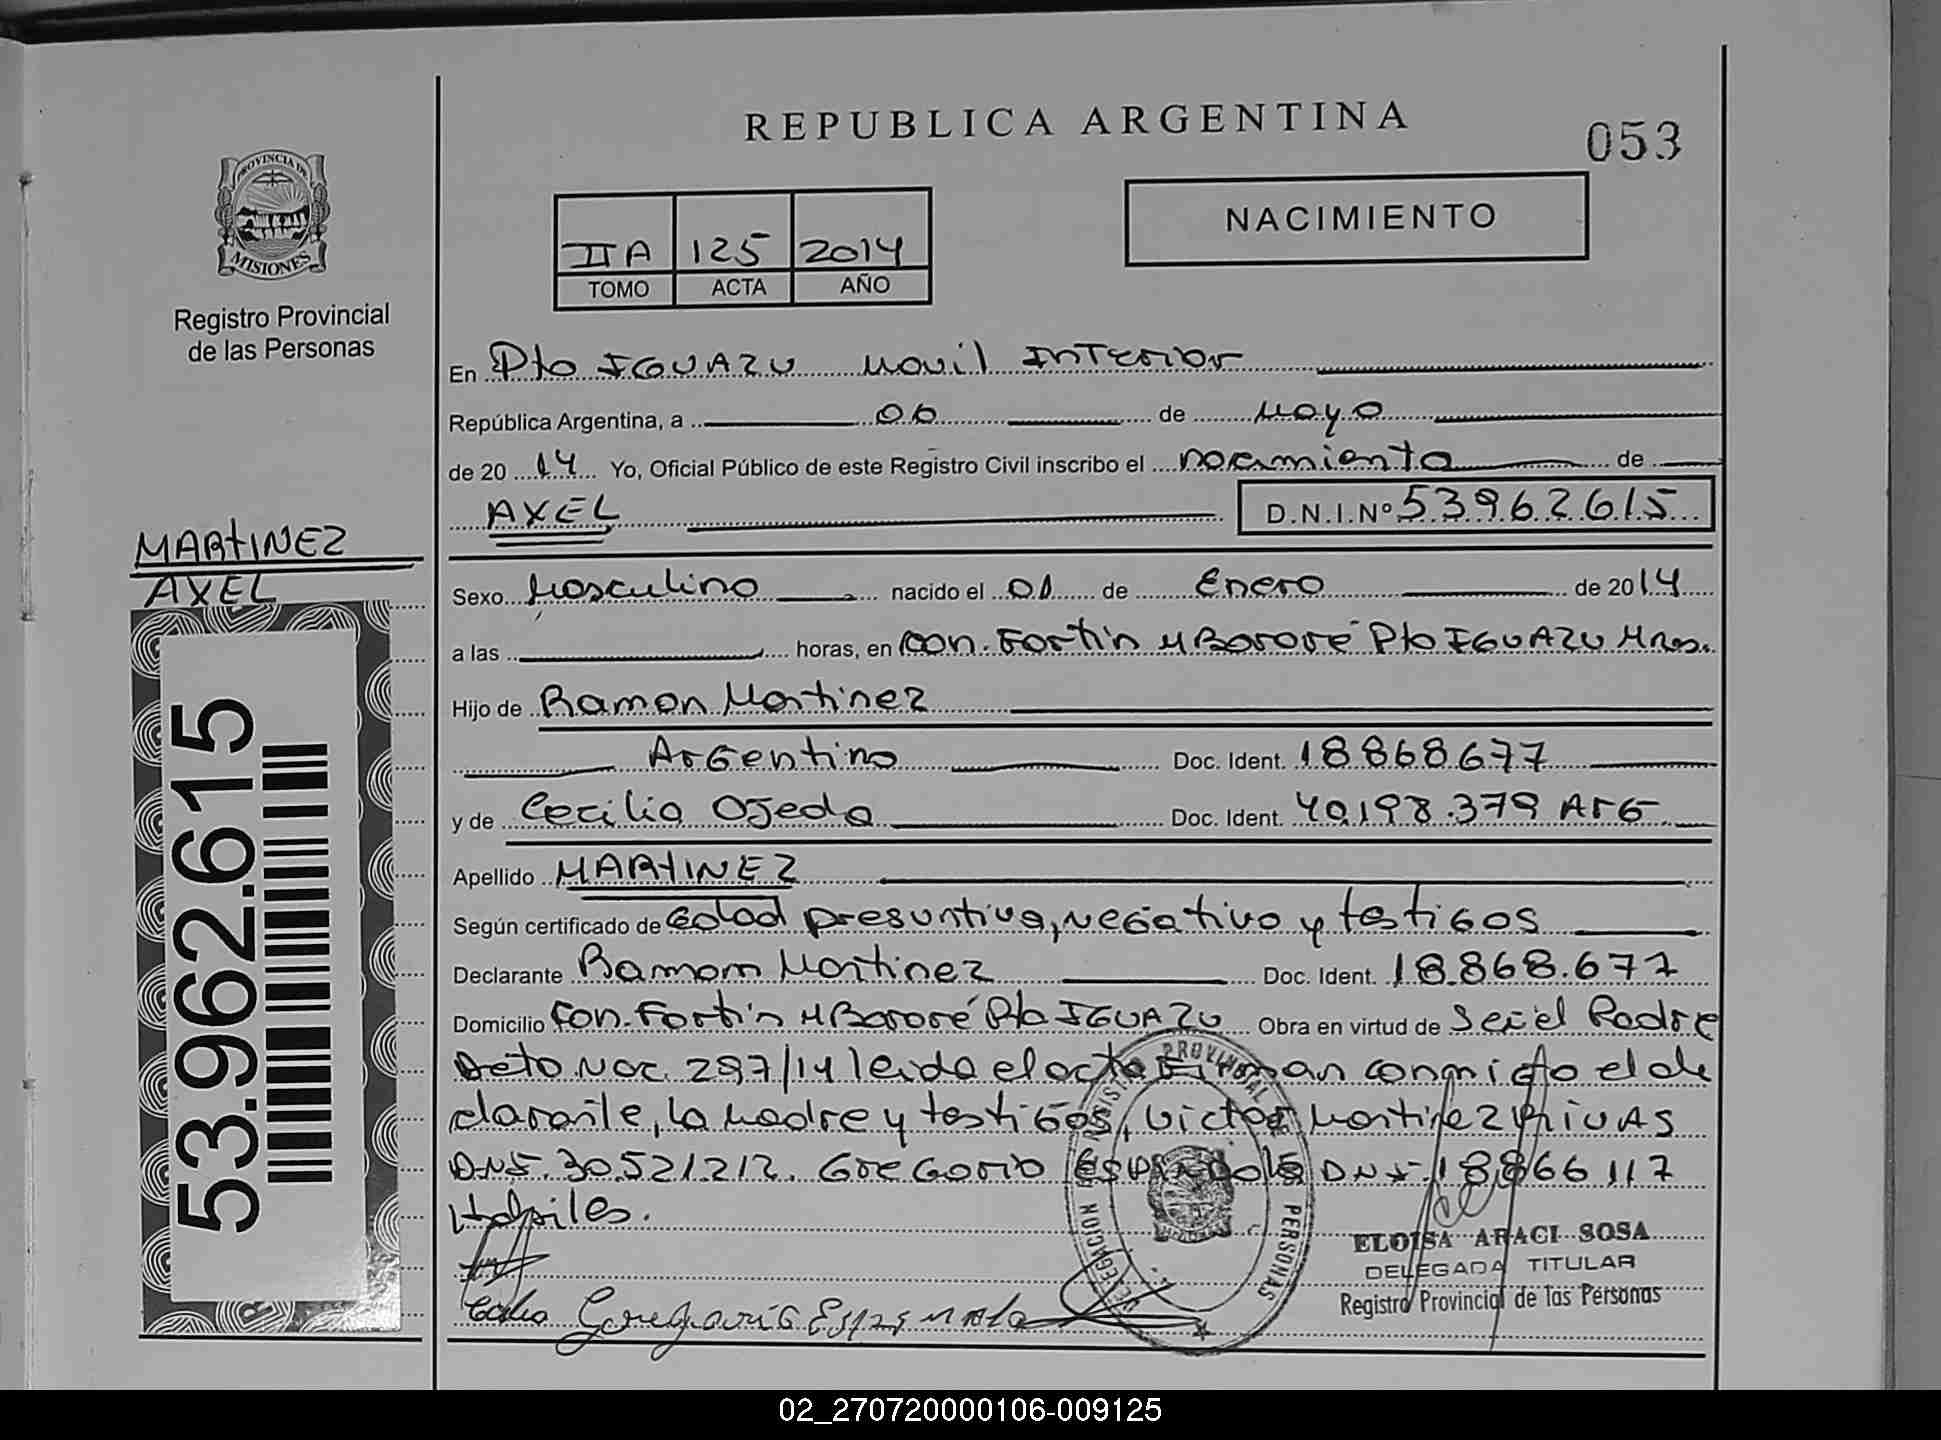 REPUBLICA ARGENTINA
053
PROVINCIA DE
MISIONES
Registro Provincial
de las Personas
IIA 125 2014
TOMO ACTA AÑO
NACIMIENTO
En Pto IGUAZU Movil INTerior
República Argentina, a 06 de Mayo
de 20 14 Yo, Oficial Público de este Registro Civil inscribo el nacimiento de
AXEL D.N.I.Nº 53962615
MARTINEZ
AXEL
53.962.615
Sexo Masculino nacido el 01 de Enero de 2014
a las horas, en Con. Fortin MBororé Pto IGUAZU Mnes.
Hijo de Ramon Martinez
Argentino Doc. Ident. 18868677
y de Cecilia Ojeda Doc. Ident. 40.198.379 ArG
Apellido MARTINEZ
Según certificado de edad presuntiva, negativo y testigos
Declarante Ramom Martinez Doc. Ident. 18.868.677
Domicilio Con. Fortin MBororé Pto IGUAZU Obra en virtud de Ser el Padre
Dcto Nac. 297/14 leida el acta Firman conmigo el de
clarante, la Madre y testigos, Victor Martinez
DNI. 30.521.212. GreGorio Espindola DNI 18866117
Habiles.
REGISTRO PROVINCIAL DE LAS PERSONAS
DELEGACION
Gregorio
ELOISA ARACI SOSA
DELEGADA TITULAR
Registro Provincial de las Personas
02_270720000106-009125